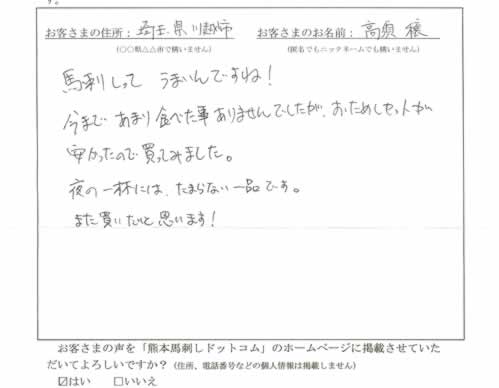 す。
お客さまの住所：埼玉県川越市　お客さまのお名前：高須 穣
(○○県△△市で構いません)　(匿名でもニックネームでも構いません)
馬刺しって うまいんですね！
今まで あまり食べた事ありませんでしたが、おためしセットが
安かったので買ってみました。
夜の一杯には、たまらない一品です。
また買いたいと思います！
お客さまの声を「熊本馬刺しドットコム」のホームページに掲載させていた
だいてよろしいですか？(住所、電話番号などの個人情報は掲載しません)
☑はい　□いいえ